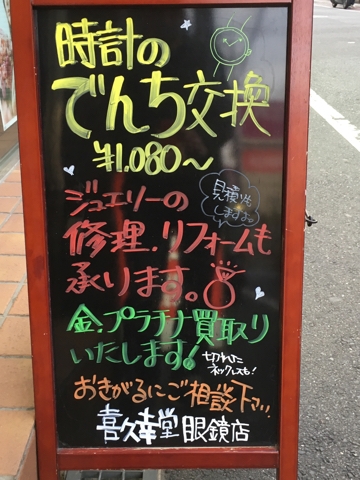 時計の
でんち交換
¥1,080～
ジュエリーの
見積りも
しますよ♪
修理.リフォームも
承ります。
金.プラチナ買取り
いたします!
切れた
ネックレスも!
おきがるにご相談下さい。
喜久幸堂眼鏡店